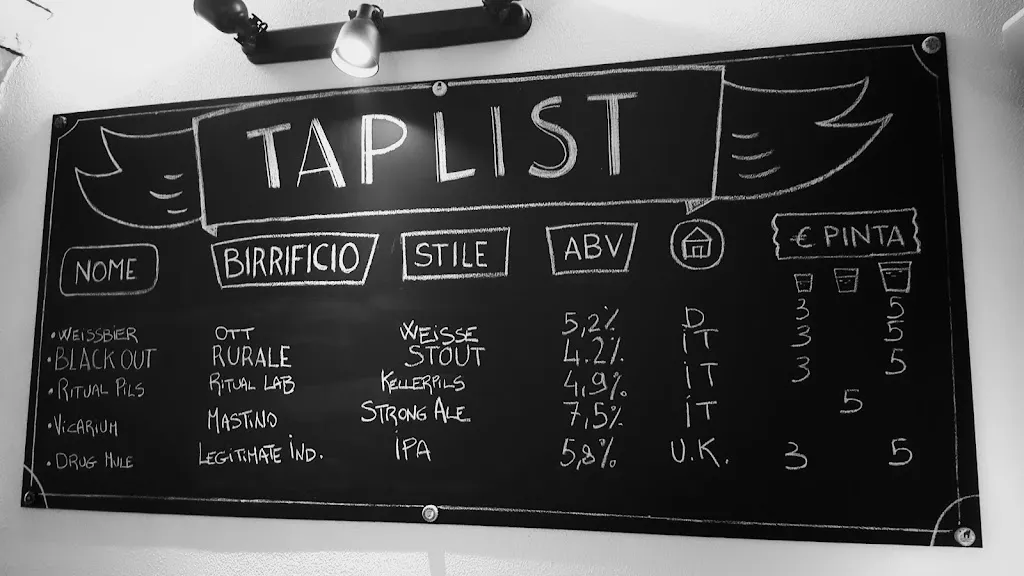 TAPLIST
NOME BIRRIFICIO STILE ABV € PINTA
• WEISSBIER OTT WEISSE 5,2% D 3 5
• BLACK OUT RURALE STOUT 4.2% iT 3 5
• RITUAL PILS RITUAL LAB KELLERPILS 4,9% iT 3 5
• VICARIUM MASTINO STRONG ALE 7,5% iT 5
• DRUG MULE LEGITIMATE IND. iPA 5,8% U.K. 3 5